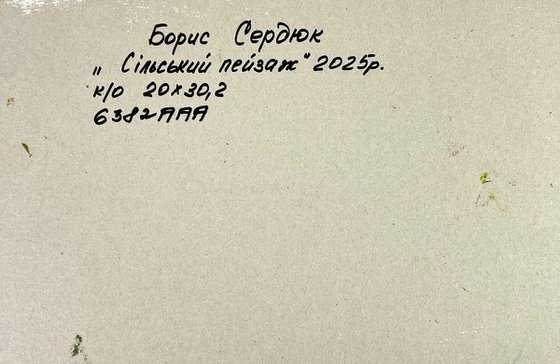 Борис Сердюк
„Сільський пейзаж" 2025р.
к/о 20×30,2
6382ААА